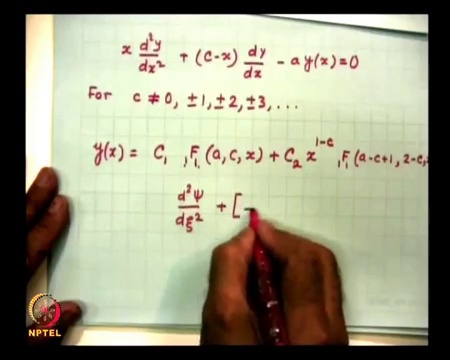 x d²y/dx² + (c-x) dy/dx - a y(x) = 0
For c ≠ 0, ±1, ±2, ±3, ...
y(x) = C₁ ₁F₁(a,c,x) + C₂ x^{1-c} ₁F₁(a-c+1, 2-c,
d²Ψ/dξ² + [
NPTEL